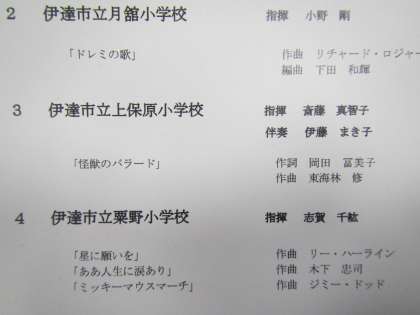 2 伊達市立月舘小学校 指揮 小野 剛
「ドレミの歌」 作曲 リチャード・ロジャー
編曲 下田 和輝
3 伊達市立上保原小学校 指揮 斎藤 真智子
伴奏 伊藤 まき子
「怪獣のバラード」 作詞 岡田 冨美子
作曲 東海林 修
4 伊達市立粟野小学校 指揮 志賀 千紘
「星に願いを」 作曲 リー・ハーライン
「ああ人生に涙あり」 作曲 木下 忠司
「ミッキーマウスマーチ」 作曲 ジミー・ドッド